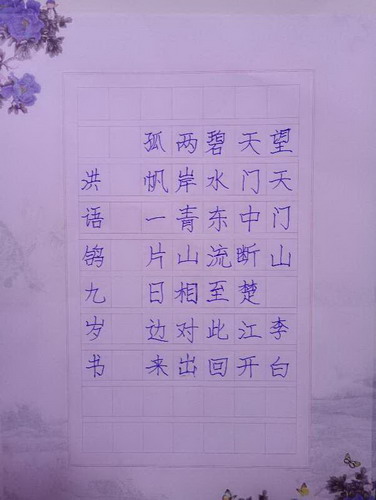 望天门山 李白
天门中断楚江开
碧水东流至此回
两岸青山相对出
孤帆一片日边来
洪语鸽九岁书